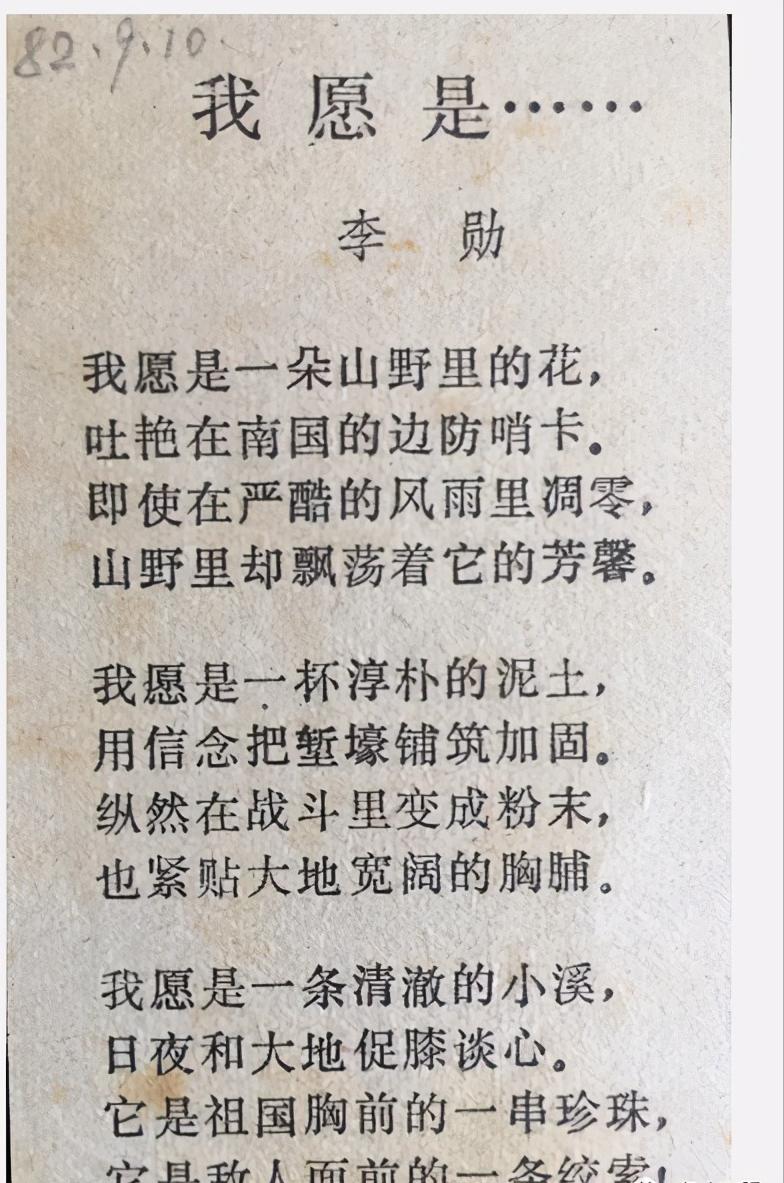 82.9.10.
我愿是……
李 勋
我愿是一朵山野里的花，
吐艳在南国的边防哨卡。
即使在严酷的风雨里凋零，
山野里却飘荡着它的芳馨。
我愿是一抔淳朴的泥土，
用信念把堑壕铺筑加固。
纵然在战斗里变成粉末，
也紧贴大地宽阔的胸脯。
我愿是一条清澈的小溪，
日夜和大地促膝谈心。
它是祖国胸前的一串珍珠，
它是敌人面前的一条绞索！